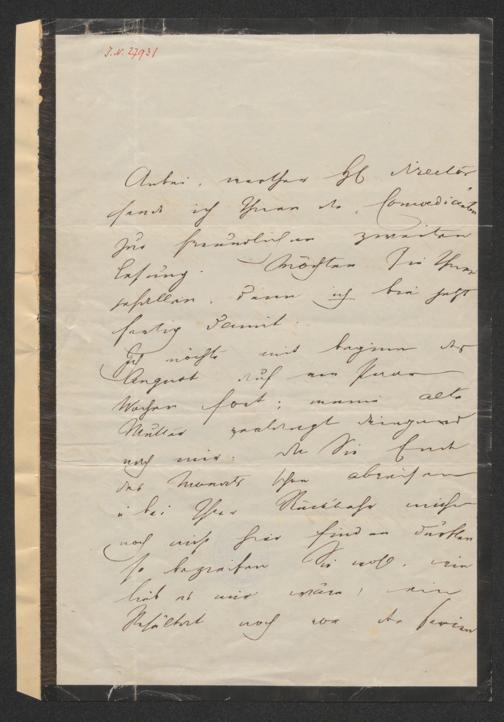 J.N. 27931
Anbei, werther H. Director
sende ich Ihnen die „Comödiantin"
zur freundlichen zweiten
Lesung. Möchten Sie Ihnen
gefallen, denn ich bin jetzt
fertig damit.
Ich möchte mit Beginn des
August auf ein Paar
Wochen fort; meine alte
Mutter verlangt dringend
nach mir. Da Sie Ende
des Monats schon abreisen
u bei Ihrer Rückkehr mich
noch nicht hier finden dürften
so begreifen Sie wohl, wie
lieb es mir wäre, ein
Resultat noch vor den Ferien